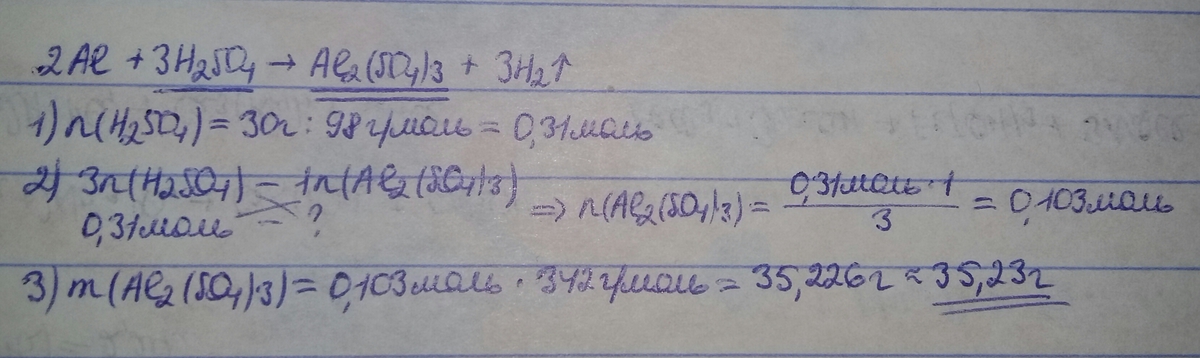 2Al + 3H₂SO₄ → Al₂(SO₄)₃ + 3H₂↑
1) n(H₂SO₄) = 30г : 98 г/моль = 0,31моль
2) 3n(H₂SO₄) – 1n(Al₂(SO₄)₃)
0,31моль – ? => n(Al₂(SO₄)₃) = 0,31моль · 1 / 3 = 0,103моль
3) m(Al₂(SO₄)₃) = 0,103моль · 342г/моль = 35,226г ≈ 35,23г